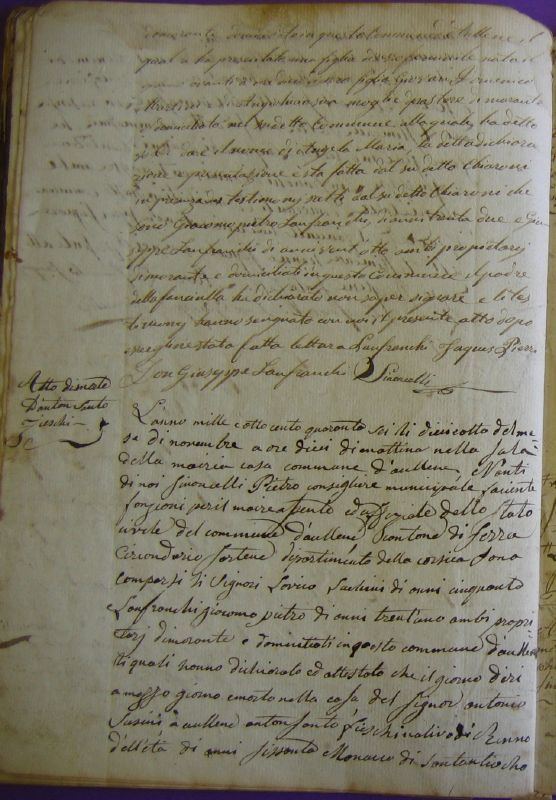 domorante domiciliato in questo Commune d'aullene il
quale a ha presentato una figlia di sesso feminile nata il
avanti di sua figlia Giovan Domenico
e di Angiolina sua moglie pastore dimorante
e domiciliata nel sudetto Commune alla quale ha detto
di dare il nome di Angela Maria la detta dichiara
zione e presentazione è sta fatta dal su detto Chiaroni
in presenza dei testimonj dal su detto Chiaroni che
sono Giacomo pietro Lanfranchi, di anni trenta due e Giu
seppe Lanfranchi di anni vent otto ambi proprietarj
dimorante e domiciliati in questo Commune il padre
della fanciulla ha dichiarato non saper signare e li tes
timonj hanno segnato con noi il presente atto dopo
essere stata fatta lettura Lanfranchi Jaques Pierre
Don Giuseppe Lanfranchi Simoncelli
Atto di morte
D'anton Santo
Fieschi
L'anno mille otto cento quaranta sei li dieciotto del me
se di novembre a ore dieci di mattina nella sala
della mairia casa commune d'aullene, avanti
di noi Simoncelli Pietro consigliere municipale faciente
fonzioni per il maire ed uffiziale dello stato
civile del commune d'aullene Cantone di Serra
Circondario Sartene dipartimento della corsica sono
comparsi li Signori Lovico Susini di anni cinquanta
Lanfranchi giacomo pietro di anni trent'uno ambi propri
tarj dimorante e domiciliati in questo commune d'aullene
li quali hanno dichiarato ed attestato che il giorno di ieri
a mezzo giorno è morto nella casa del Signor antonio
Susini à aullene anton Santo Fieschi nativo di Renno
dell'età di anni sissanta Monaco di Santantiocho